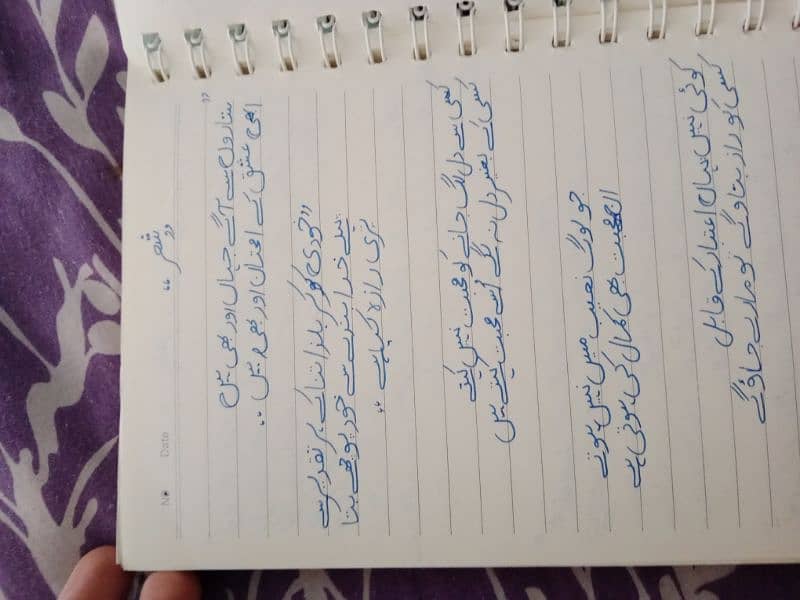 No Date
"شعر"
"ستاروں سے آگے جہاں اور بھی ہیں
ابھی عشق کے امتحان اور بھی ہیں"
"خودی کو کر بلند اتنا کے ہر تقدیر سے
پہلے خدا بندے سے خود پوچھے بتا
تیری رازا کیا ہے"
کسی سے دل لگ جانے کو محبت نہیں کہتے
کسی کے بغیر دل نہ لگے اسے محبت کہتے ہیں
جو لوگ نصیب میں نہیں ہوتے
ان سے محبت بھی کمال کی ہوتی ہے
کوئی نہیں یہاں اعتبار کے قابل
کسی کو راز بتاو گے تو مارے جاؤ گے